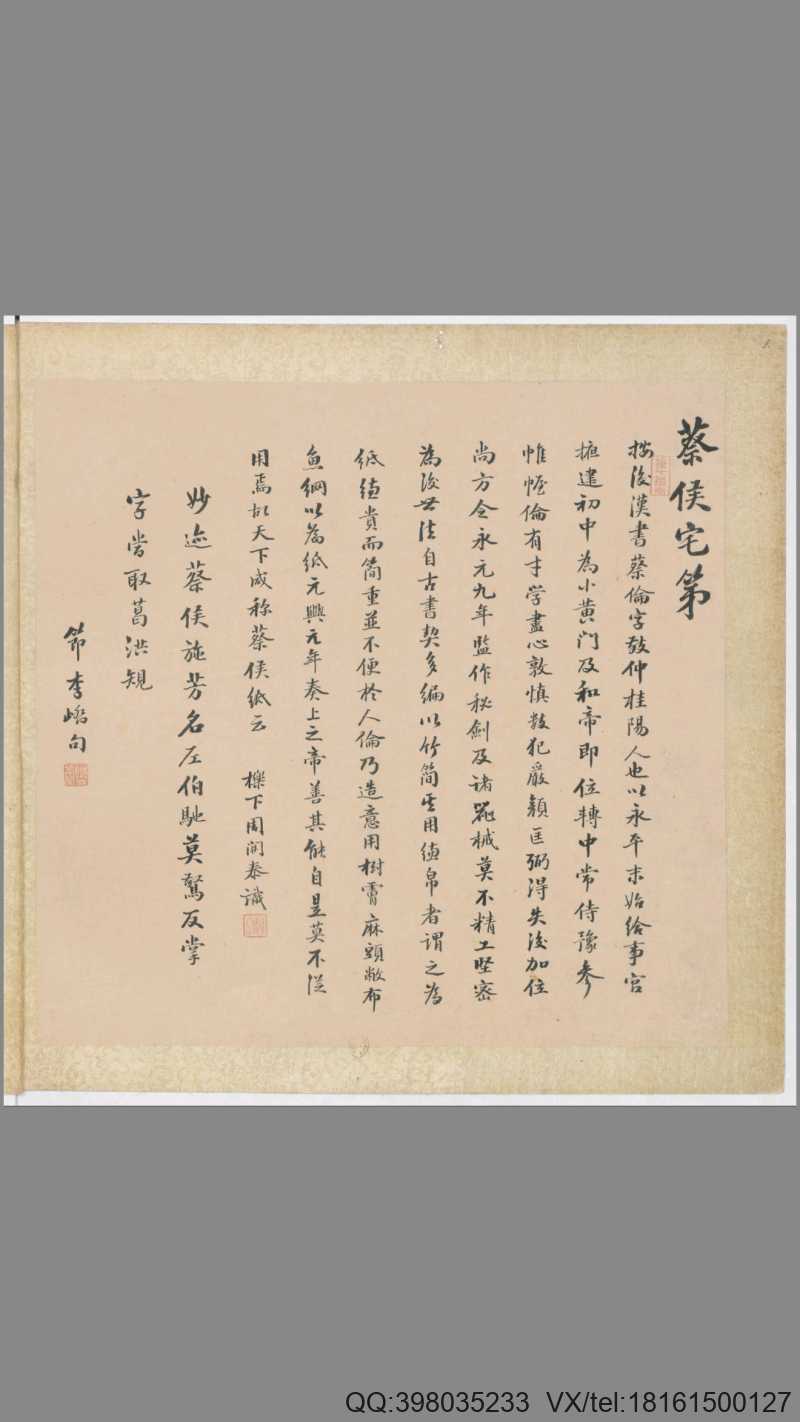 蔡侯宅第
按後漢書蔡倫字敬仲桂陽人也以永平末始給事宮
掖建初中為小黄門及和帝即位轉中常侍豫参
帷幄倫有才学盡心敦慎數犯嚴顔匡弼得失後加位
尚方令永元九年監作秘劍及諸器械莫不精工堅密
為後世法自古書契多編以竹简其用縑帛者谓之為
紙縑貴而简重並不便於人倫乃造意用樹膚麻頭敝布
魚網以為紙元興元年奏上之帝善其能自是莫不従
用焉故天下咸称蔡侯紙云 櫟下周
妙迹蔡侯施芳名左伯馳莫驚反掌
字當取葛洪規
節李嶠句
QQ:398035233 VX/tel:18161500127